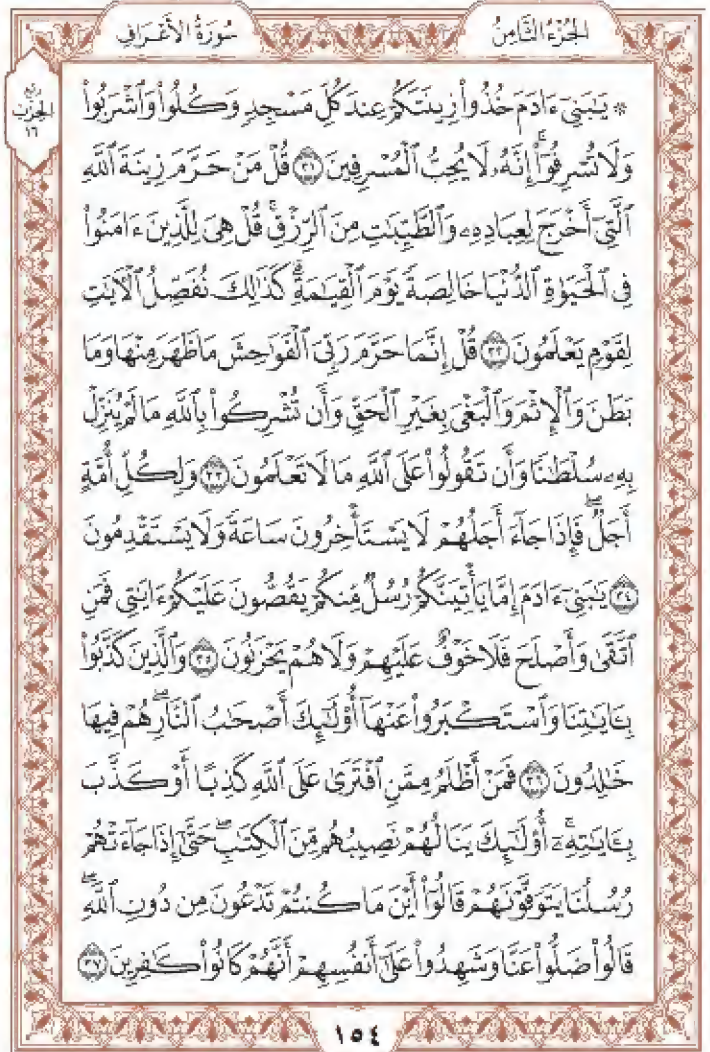 الجُزْءُ الثَّامِنُ
سُورَةُ الأَعْرَافِ
رُبْعُ
الحِزْبِ
١٦
۞ يَٰبَنِىٓ ءَادَمَ خُذُوا۟ زِينَتَكُمْ عِندَ كُلِّ مَسْجِدٍ وَكُلُوا۟ وَٱشْرَبُوا۟
وَلَا تُسْرِفُوٓا۟ ۚ إِنَّهُۥ لَا يُحِبُّ ٱلْمُسْرِفِينَ ٣١ قُلْ مَنْ حَرَّمَ زِينَةَ ٱللَّهِ
ٱلَّتِىٓ أَخْرَجَ لِعِبَادِهِۦ وَٱلطَّيِّبَٰتِ مِنَ ٱلرِّزْقِ ۚ قُلْ هِىَ لِلَّذِينَ ءَامَنُوا۟
فِى ٱلْحَيَوٰةِ ٱلدُّنْيَا خَالِصَةً يَوْمَ ٱلْقِيَٰمَةِ ۗ كَذَٰلِكَ نُفَصِّلُ ٱلْءَايَٰتِ
لِقَوْمٍ يَعْلَمُونَ ٣٢ قُلْ إِنَّمَا حَرَّمَ رَبِّىَ ٱلْفَوَٰحِشَ مَا ظَهَرَ مِنْهَا وَمَا
بَطَنَ وَٱلْإِثْمَ وَٱلْبَغْىَ بِغَيْرِ ٱلْحَقِّ وَأَن تُشْرِكُوا۟ بِٱللَّهِ مَا لَمْ يُنَزِّلْ
بِهِۦ سُلْطَٰنًا وَأَن تَقُولُوا۟ عَلَى ٱللَّهِ مَا لَا تَعْلَمُونَ ٣٣ وَلِكُلِّ أُمَّةٍ
أَجَلٌ ۖ فَإِذَا جَآءَ أَجَلُهُمْ لَا يَسْتَأْخِرُونَ سَاعَةً ۖ وَلَا يَسْتَقْدِمُونَ
٣٤ يَٰبَنِىٓ ءَادَمَ إِمَّا يَأْتِيَنَّكُمْ رُسُلٌ مِّنكُمْ يَقُصُّونَ عَلَيْكُمْ ءَايَٰتِى ۙ فَمَنِ
ٱتَّقَىٰ وَأَصْلَحَ فَلَا خَوْفٌ عَلَيْهِمْ وَلَا هُمْ يَحْزَنُونَ ٣٥ وَٱلَّذِينَ كَذَّبُوا۟
بِـَٔايَٰتِنَا وَٱسْتَكْبَرُوا۟ عَنْهَآ أُو۟لَٰٓئِكَ أَصْحَٰبُ ٱلنَّارِ ۖ هُمْ فِيهَا
خَٰلِدُونَ ٣٦ فَمَنْ أَظْلَمُ مِمَّنِ ٱفْتَرَىٰ عَلَى ٱللَّهِ كَذِبًا أَوْ كَذَّبَ
بِـَٔايَٰتِهِۦٓ ۚ أُو۟لَٰٓئِكَ يَنَالُهُمْ نَصِيبُهُم مِّنَ ٱلْكِتَٰبِ ۖ حَتَّىٰٓ إِذَا جَآءَتْهُمْ
رُسُلُنَا يَتَوَفَّوْنَهُمْ قَالُوٓا۟ أَيْنَ مَا كُنتُمْ تَدْعُونَ مِن دُونِ ٱللَّهِ ۖ
قَالُوا۟ ضَلُّوا۟ عَنَّا وَشَهِدُوا۟ عَلَىٰٓ أَنفُسِهِمْ أَنَّهُمْ كَانُوا۟ كَٰفِرِينَ ٣٧
١٥٤